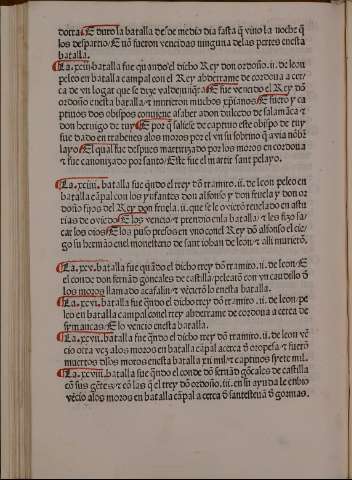 dorra. E duro la batalla desde medio dia fasta q̃ vino la noche q̃
los despartio. E nõ fueron vencidas ninguna delas partes enesta
batalla.
La .xciii. batalla fue quando el dicho Rey don ordoño .ii. de leon
peleo en batalla campal con el Rey abderrame de cordoua a cer-
ca de vn logar que se dize valdejunq̃ra. E fue vencido el Rey dõ
ordoño enesta batalla. & murieron muchos xp̃ianos. E fuero y ca
ptiuos dos obispos conuiene a saber a don dulcedo de salamãca &
don hermigo de tuy. E por q̃ saliese de captiuo este obispo de tuy
fue dado en trabenes alos moros por el vn su sobrino q̃ auia nõbr
layo. E el qual fue despues martirizado por los moros en cordoua
& fue canonizado por santo. Este fue el martir sant pelayo.
La .xciiii. batalla fue q̃ndo el rrey dõ rramiro .ii. de leon peleo en
batalla cãpal con los ynfantes don alfonso y don fruela y don or
doño fijos del Rey don fruela .ii. que se le ouierõ reuelado en astu
rias de ouiedo. E los vencio & prendio enla batalla / & les fizo sa/
car los oios. E los puso presos en vno conel Rey dõ alfonso el cie/
go su hermano enel monesterio de sant ioban de leon / & alli murierõ.
La .xcv. batalla fue quãdo el dicho rrey dõ rramiro .ii. de leon / E
el conde don fernãdo gonçales de castilla / pelearõ con vn caudillo õ
los moros llamado acafali / & vẽcierõ lo enesta batalla.
La .xcvi. batalla fue q̃ndo el dicho rrey dõ rramiro .ii. de leon / pe
leo en batalla campal conel rrey abderrame de cordoua a cerca de
symancas / E lo vencio enesta batalla.
La .xcvii. batalla fue q̃ndo el dicho rrey dõ rramiro .ii. de leon vẽ
cio otra vez alos moros en batalla cãpal acerca õ oropesa / & fuerõ
muertos dlos moros enesta batalla xii mil / & captiuos syete mil.
La .xcviii. batalla fue q̃ndo el conde dõ fernãd gõçales de castilla
cõ sus gẽtes / & cõ las q̃ el rrey dõ ordoño .iii. en su ayuda le enbio
vẽcio alos moros en batalla cãpal a cerca õ santesteuã õ gormas.